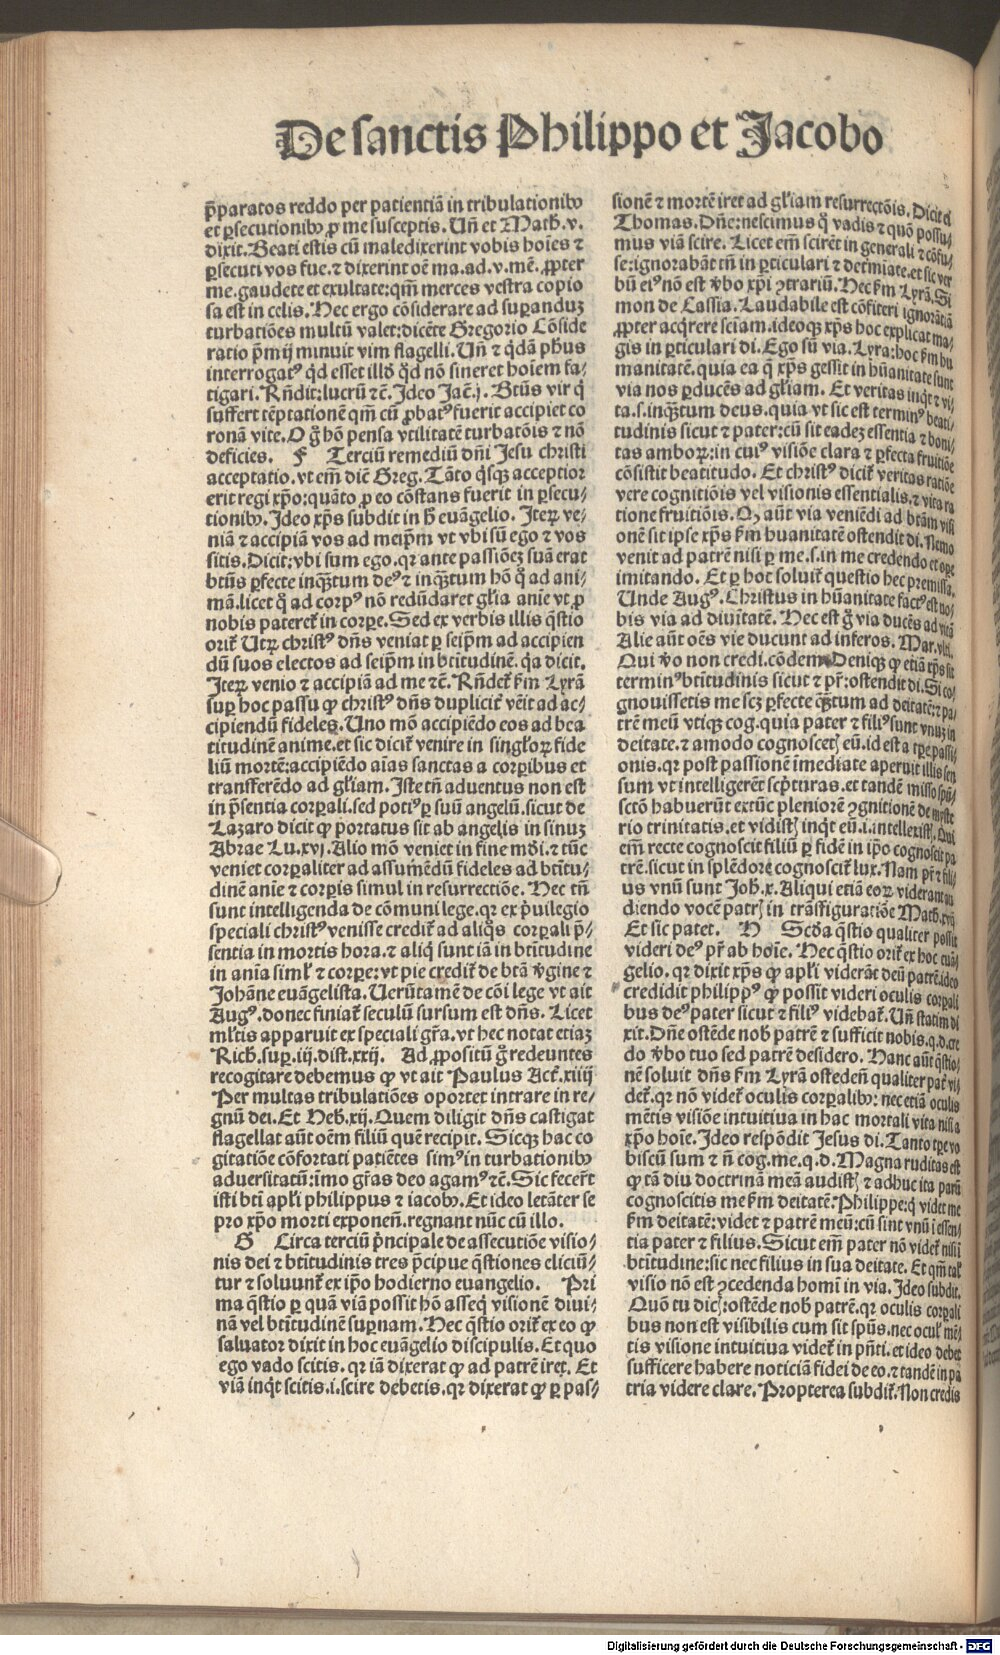 De sanctis Philippo et Jacobo
p̄paratos reddo per patientiā in tribulationibꝰ
et ꝑsecutionibꝰ ꝓ me susceptis. Un̄ et Math. v.
dixit. Beati estis cū maledixerint vobis hoīes ⁊
ꝑsecuti vos fue. ⁊ dixerint oē ma. ad. v. mē. ꝓpter
me. gaudete et exultate: qm̄ merces vestra copio
sa est in celis. Hec ergo cōsiderare ad suꝑanduꝫ
turbatiōes multū valet: dicēte Gregorio Cōside
ratio p̄mij minuit vim flagelli. Un̄ ⁊ q̇dā ph̄us
interrogatꝰ qd̄ esset illd̄ qd̄ nō sineret hoīem fa-
tigari. Rn̄dit: lucrū ⁊c̄. Ideo Jac̄. j. Btūs vir q̇
suffert tēptationē qm̄ cū ꝓbatꝰ fuerit accipiet co
ronā vite. O g̊ hō pensa vtilitatē turbatōis ⁊ nō
deficies. F Terciū remediū dn̄i Jesu christi
acceptatio. vt em̄ dic̄ Greg. Tāto q̇sqꝫ acceptior
erit regi xp̄o: quāto ꝓ eo cōstans fuerit in ꝑsecu-
tionibꝰ. Ideo xp̄s subdit in h̄ euāgelio. Iteꝝ ve-
niā ⁊ accipiā vos ad meip̄m vt vbi sū ego ⁊ vos
sitis. Dicit: vbi sum ego. qꝛ ante passiōeꝫ suā erat
btūs ꝑfecte inqꝫtum deꝰ ⁊ inqꝫtum hō q̊ ad ani-
mā. licet q̊ ad corpꝰ nō redūdaret gl̄ia anīe vt ꝓ
nobis pateret̃ in corꝑe. Sed ex verbis illis q̄stio
orit̃ Utꝝ christꝰ dn̄s veniat ꝑ seip̄m ad accipien
dū suos electos ad seip̄m in btitudinē. q̇a dicit.
Iteꝝ venio ⁊ accipiā ad me ⁊c̄. Rn̄det̃ ẜm Lyrā
suꝑ hoc passu ꝙ christꝰ dn̄s duplicit̃ vēit ad ac-
cipiendū fideles. Uno mō accipiēdo eos ad bea
titudinē anime. et sic dicit̃ venire in singl̄oꝝ fide
liū mortē: accipiēdo aīas sanctas a corꝑibus et
transferēdo ad gl̄iam. Iste tn̄ aduentus non est
in p̄sentia corꝑali. sed potiꝰ ꝑ suū angelū. sicut de
Lazaro dicit ꝙ portatus sit ab angelis in sinuꝫ
Abrae Lu. xvj. Alio mō veniet in fine mōi. ⁊ tūc
veniet corꝑaliter ad assumēdū fideles ad btitu-
dinē anīe ⁊ corꝑis simul in resurrectiōe. Hec tn̄
sunt intelligenda de cōmuni lege. qꝛ ex p̄uilegio
speciali christꝰ venisse credit̃ ad aliq̄s corꝑali p̄-
sentia in mortis hora. ⁊ aliq̇ sunt iā in btitudine
in anīa siml̄ ⁊ corꝑe: vt pie credit̃ de btā v̄gine ⁊
Johāne euāgelista. Uerūtamē de cōi lege vt ait
Augꝰ. donec finiat̃ seculū sursum est dn̄s. Licet
ml̄tis apparuit ex speciali gr̄a. vt hec notat etiaꝫ
Rich. suꝑ. iij. dist. xxij. Ad ꝓpositū g̊ redeuntes
recogitare debemus ꝙ vt ait Paulus Act̃. xiiij
Per multas tribulatiōes oportet intrare in re-
gnū dei. Et Heb̃. xij. Quem diligit dn̄s castigat
flagellat aūt oēm filiū quē recipit. Sicqꝫ hac co
gitatiōe cōfortati patiētes simꝰ in turbationibꝰ
aduersitatū: imo gr̄as deo agamꝰ ⁊c̄. Sic fecerūt
isti bti apl̄i philippus ⁊ iacobꝰ. Et ideo letāter se
pro xp̄o morti exponen̄. regnant nūc cū illo.
G Circa terciū p̄ncipale de assecutiōe visio-
nis dei ⁊ btitudinis tres p̄cipue q̄stiones eliciū-
tur ⁊ soluunt̃ ex ip̄o hodierno euangelio. Pri
ma q̄stio ꝑ quā viā possit hō asseq̇ visionē diui-
nā vel btitudinē suꝑnam. Hec q̄stio orit̃ ex eo ꝙ
saluator dixit in hoc euāgelio discipulis. Et quo
ego vado scitis. qꝛ iā dixerat ꝙ ad patrē iret. Et
viā inqt̄ scitis. i. scire debetis. qꝛ dixerat ꝙ ꝑ pas-
sionē ⁊ mortē iret ad gl̄iam resurrectōis. Dicit ei
Thomas. Dn̄e: nescimus q̊ vadis ⁊ quō possu-
mus viā scire. Licet em̄ scirēt in generali ⁊ cōfu-
se: ignorabāt tn̄ in ꝑticulari ⁊ determīate. et sic ver
bū eiꝰ nō est v̄bo xp̄i ꝯtrariū. Hec ẜm Lyrā. Si
mon de Cassia. Laudabile est cōfiteri ignorātiā
ꝓpter acq̇rere sciam. ideoqꝫ xp̄s hoc explicat ma-
gis in ꝑticulari di. Ego sū via. Lyra: hoc ẜm hu
manitatē. quia ea q̄ xp̄s gessit in hūanitate sunt
via nos ꝑducēs ad gl̄iam. Et veritas inqt̄ ⁊ vi-
ta. s. inqꝫtum deus. quia vt sic est terminꝰ beati-
tudinis sicut ⁊ pater: cū sit eadeꝫ essentia ⁊ boni-
tas amboꝝ: in cuiꝰ visiōe clara ⁊ ꝑfecta fruitiōe
cōsistit beatitudo. Et christꝰ dicit̃ veritas ratiōe
vere cognitiōis vel visionis essentialis. ⁊ vita ra
tione fruitiōis. Qꝫ aūt via veniēdi ad btām visi
onē sit ipse xp̄s ẜm huanitatē ostendit di. Nemo
venit ad patrē nisi ꝑ me. s. in me credendo et oꝑe
imitando. Et ꝑ hoc soluit̃ questio hec premissa.
Unde Augꝰ. Christus in hūanitate factꝰ est no-
bis via ad diuītatē. Hec est g̊ via ducēs ad vitā
Alie aūt oēs vie ducunt ad inferos. Mar. vlti.
Qui v̄o non credi. cōdem. Deniqꝫ ꝙ etiā xp̄s sit
terminꝰ btitudinis sicut ⁊ pr̄: ostendit di. Si co-
gnouissetis me scꝫ ꝑfecte qꝫtum ad deitatē: ⁊ pa-
trē meū vtiqꝫ cog. quia pater ⁊ filiꝰ sunt vnuꝫ in
deitate. ⁊ amodo cognoscetꝭ eū. id est a tꝑe passi-
onis. qꝛ post passionē imediate aperuit illis sen
sum vt intelligerēt scp̄turas. et tandē misso spū-
sctō habuerūt extūc pleniorē ꝯgnitionē de myste
rio trinitatis. et vidistꝭ inqt̄ eū. i. intellexistꝭ. Qui
em̄ recte cognoscit filiū ꝑ fidē in ip̄o cognoscit pa
trē. sicut in splēdore cognoscit̃ lux. Nam pr̄ ⁊ fili-
us vnū sunt Joh̄. x. Aliqui etiā eoꝝ viderant au
diendo vocē patrꝭ in trāsfiguratiōe Math. xvij.
Et sic patet. H Scd̄a q̄stio qualiter possit
videri deꝰ pr̄ ab hoīe. Hec q̄stio orit̃ ex hoc euā-
gelio. qꝛ dixit xp̄s ꝙ apl̄i viderāt deū patrē. ideo
credidit philippꝰ ꝙ possit videri oculis corꝑali
bus deꝰ pater sicut ⁊ filiꝰ videbat̃. Un̄ statim di
xit. Dn̄e ostēde nob̄ patrē ⁊ sufficit nobis. q. d. cre
do v̄bo tuo sed patrē desidero. Hanc aūt q̄stio-
nē soluit dn̄s ẜm Lyrā osteden̄ qualiter pat̃ vi-
det̃. qꝛ nō videt̃ oculis corꝑalibꝰ: nec etiā oculis
mētis visiōe intuitiua in hac mortali vita nisi a
xp̄o hoīe. Ideo respōdit Jesus di. Tanto tꝑe vo
biscū sum ⁊ n̄ cog. me. q. d. Magna ruditas est
ꝙ tā diu doctrinā meā audistꝭ ⁊ adhuc ita parū
cognoscitis me ẜm deitatē. Philippe: q̇ videt me
ẜm deitatē: videt ⁊ patrē meū: cū sint vnū ī essen-
tia pater ⁊ filius. Sicut em̄ pater nō videt̃ nisi ī
btitudine: sic nec filius in sua deitate. Et qm̄ tal̃
visio nō est ꝯcedenda homī in via. Ideo subdit.
Quō tu dicꝭ: ostēde nob̄ patrē. qꝛ oculis corꝑali
bus non est visibilis cum sit spūs. nec ocul̃ mē-
tis visione intuitiua videt̃ in pn̄ti. et ideo debet
sufficere habere noticiā fidei de eo. ⁊ tandē in pa
tria videre clare. Propterea subdit̃. Non credis
Digitalisierung gefördert durch die Deutsche Forschungsgemeinschaft - DFG